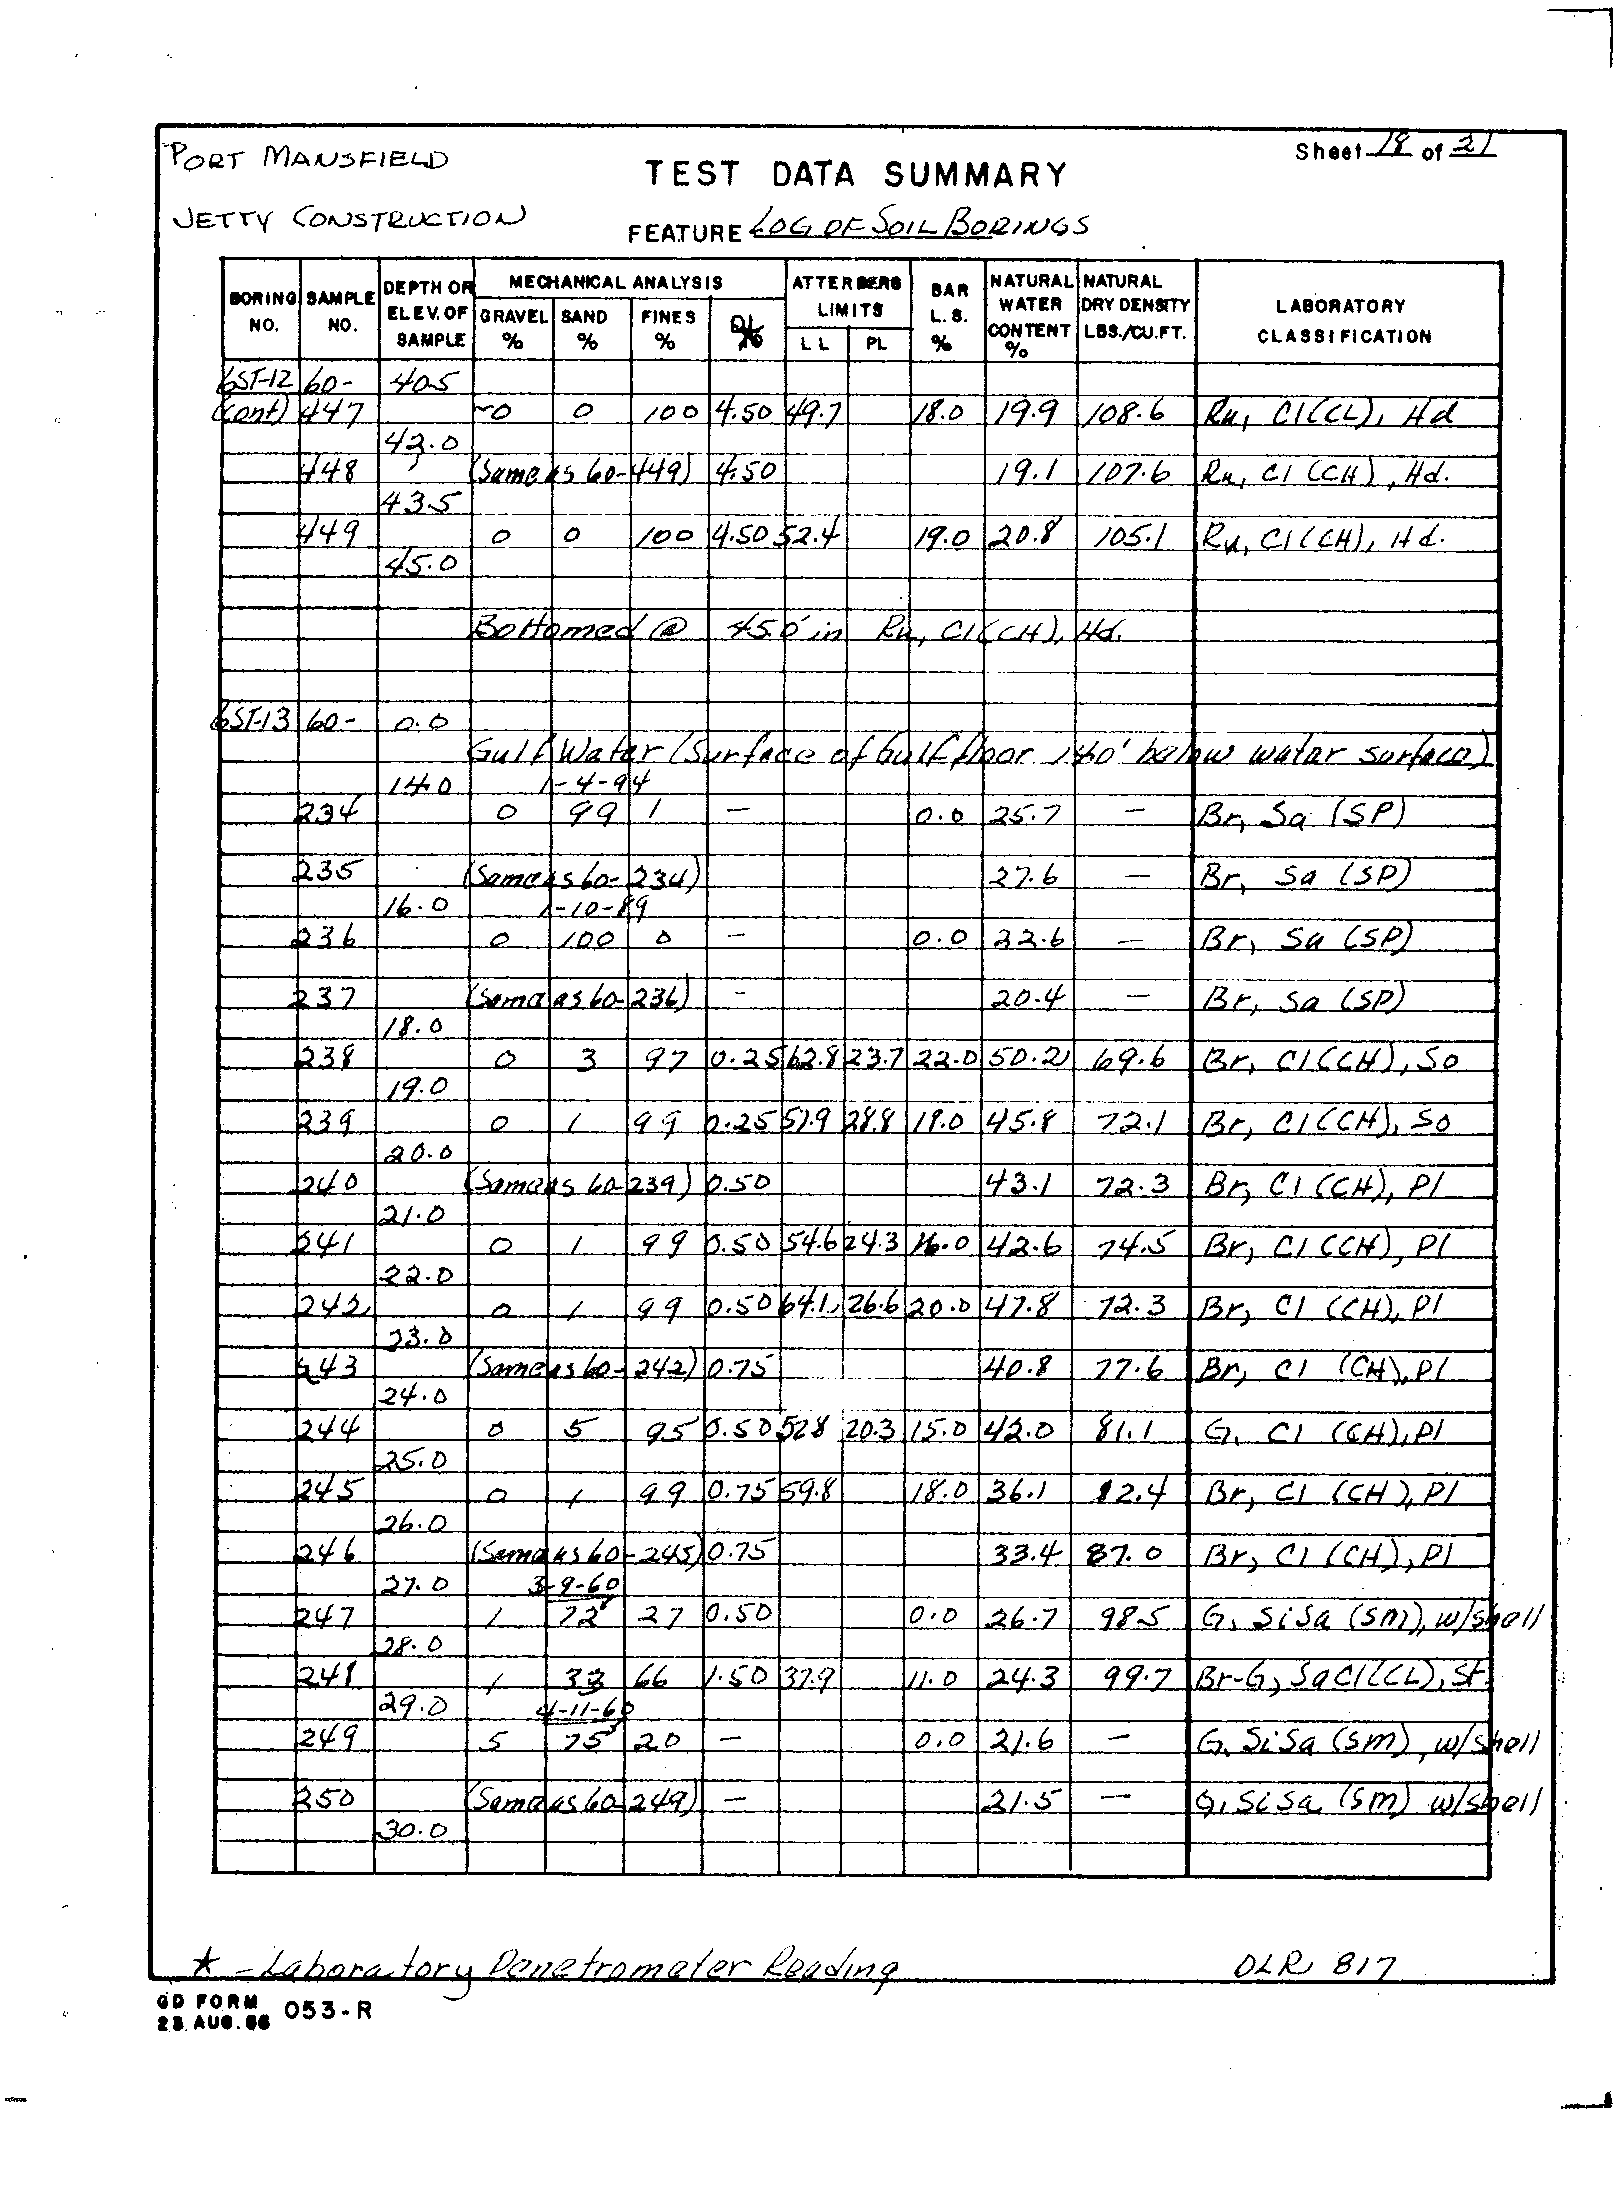 PORT MANSFIELD
Sheet 18 of 21
TEST DATA SUMMARY
JETTY CONSTRUCTION
FEATURE LOG OF SOIL BORINGS
BORING NO. SAMPLE NO. DEPTH OR ELEV. OF SAMPLE MECHANICAL ANALYSIS GRAVEL % SAND % FINES % ATTERBERG LIMITS LL PL BAR L.S. % NATURAL WATER CONTENT % NATURAL DRY DENSITY LBS./CU.FT. LABORATORY CLASSIFICATION
6ST-12 60- 40.5
(cont) 447 0 0 100 4.50 49.7 18.0 19.9 108.6 Ru, Cl (CL), Hd
42.0
448 (Same as 60-449) 4.50 19.1 107.6 Ru, Cl (CH), Hd.
43.5
449 0 0 100 4.50 52.4 19.0 20.8 105.1 Ru, Cl (CH), Hd.
45.0
Bottomed @ 45.0' in Ru, Cl (CH), Hd.
6ST-13 60- 0.0
Gulf Water (Surface of Gulf floor 14.0' below water surface)
14.0 1-4-94
234 0 99 1 — 0.0 25.7 — Br, Sa (SP)
235 (Same as 60-234) 27.6 — Br, Sa (SP)
16.0 1-10-89
236 0 100 0 — 0.0 22.6 — Br, Sa (SP)
237 (Same as 60-236) — 20.4 — Br, Sa (SP)
18.0
238 0 3 97 0.25 62.8 23.7 22.0 50.2 69.6 Br, Cl (CH), So
19.0
239 0 1 99 0.25 57.9 28.8 18.0 45.8 72.1 Br, Cl (CH), So
20.0
240 (Same as 60-239) 0.50 43.1 72.3 Br, Cl (CH), Pl
21.0
241 0 1 99 0.50 54.6 24.3 16.0 42.6 74.5 Br, Cl (CH), Pl
22.0
242 0 1 99 0.50 64.1 26.6 20.0 47.8 72.3 Br, Cl (CH), Pl
23.0
243 (Same as 60-242) 0.75 40.8 77.6 Br, Cl (CH), Pl
24.0
244 0 5 95 0.50 52.8 20.3 15.0 42.0 81.1 G, Cl (CH), Pl
25.0
245 0 1 99 0.75 59.8 18.0 36.1 82.4 Br, Cl (CH), Pl
26.0
246 (Same as 60-245) 0.75 33.4 87.0 Br, Cl (CH), Pl
27.0 3-9-60
247 1 72 27 0.50 0.0 26.7 98.5 G, SiSa (SM), w/shell
28.0
248 1 33 66 1.50 37.9 11.0 24.3 99.7 Br-G, SaCl (CL), St.
29.0 4-11-60
249 5 75 20 — 0.0 21.6 — G, SiSa (SM), w/shell
250 (Same as 60-249) — 21.5 — G, SiSa (SM) w/shell
30.0
* - Laboratory Penetrometer Reading
DLR 817
GD FORM 053-R
23 AUG. 66